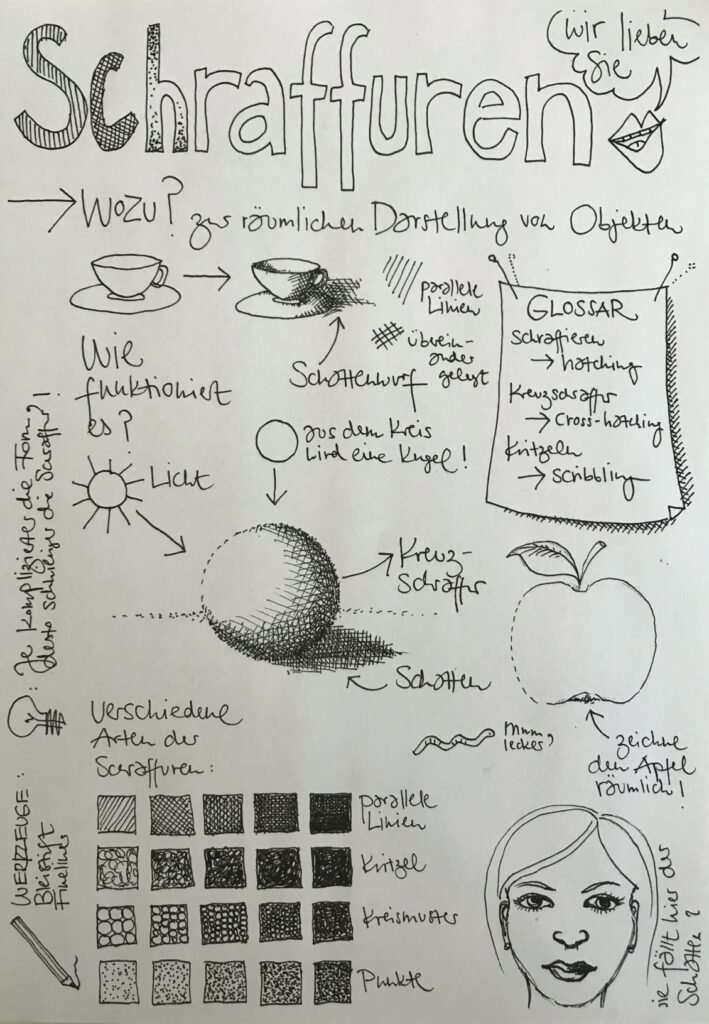 Schraffuren
Wir lieben
sie
Wozu? zur räumlichen Darstellung von Objekten
parallele
Linien
überein-
ander
gelegt
Schattenwurf
GLOSSAR
Schraffieren
→ hatching
Kreuzschraffur
→ Cross-hatching
Kritzeln
→ scribbling
Wie
funktioniert
es?
Licht
aus dem Kreis
wird eine Kugel!
Kreuz-
Schraffur
Schatten
Je komplizierter die Form,
desto schwieriger die Schraffur!
mmm,
lecker
zeichne
den Apfel
räumlich!
Verschiedene
Arten der
Schraffuren:
parallele
Linien
Kritzel
Kreismuster
Punkte
WERKZEUGE:
Bleistift
Fineliner
wie fällt hier der
Schatten?